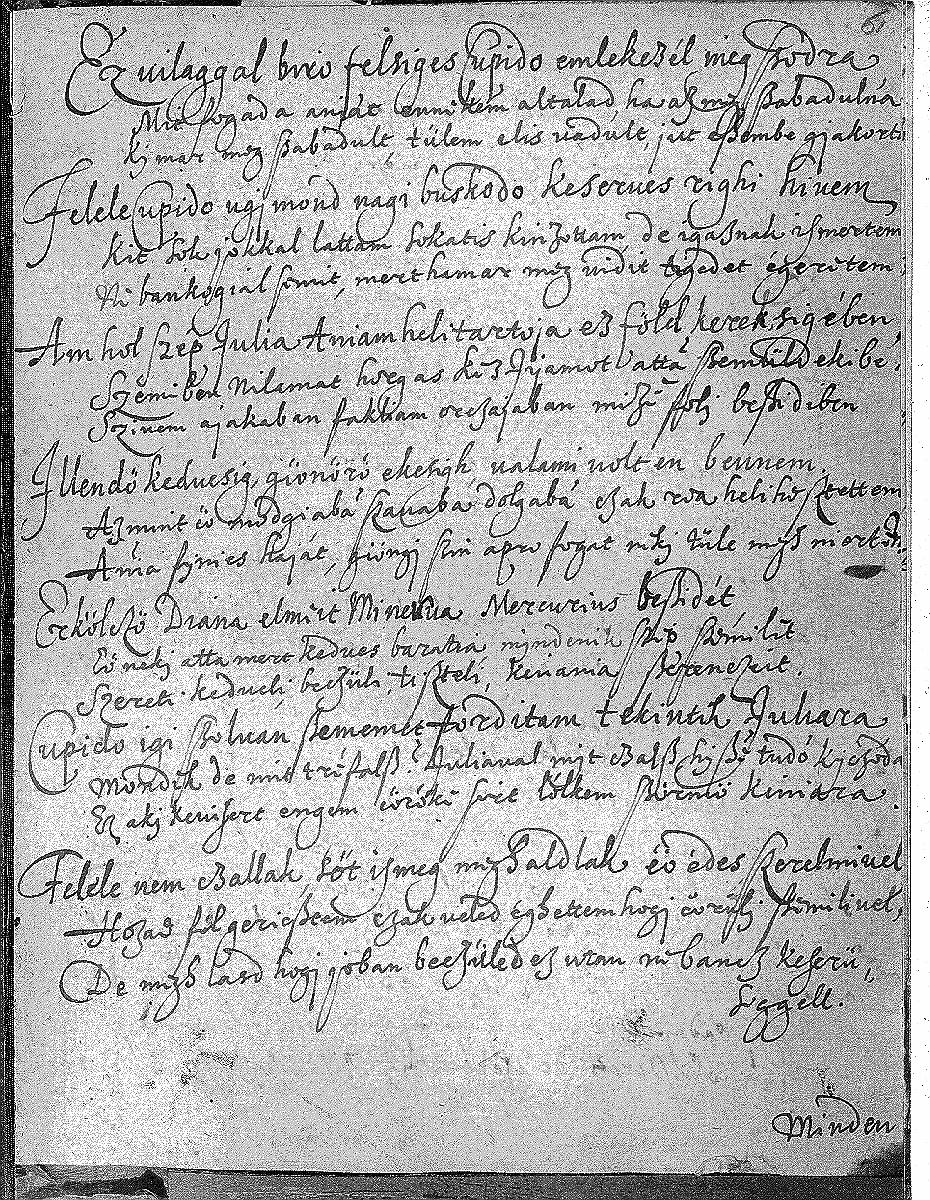 Ez vilaggal biro felsiges Cupido emlekezél meg szodra
Mit fogada anját ennikem altalad ha az meg szabadulna
Kj mar meg szabadult, tülem elis vadult, jut eszembe gjakorta
Felele Cupido ugj mond nagi buskodo keserves righi hivem
Kit sok jokkal lattam sokatis kinzottam, de igasnak ismertem
Ne bankogial semit, mert hamar meg vidit tigedet igeretem
Am hol szep Julia Aniam heli tartoja ez föld kereksigében
Szemiben Nilamat horgas kiz Ijjamot atta szemüldekibe,
Szivem ajakaban faklyam orczajaban mizü foly beszidiben
Illendö kedvesig, giönörö ekesigh valami volt en bennem,
Az mint eö modgiaba szavaba dolgaba czak rea helihesztettem
Ania synies haját, giöngj szin apro fogat nekj tüle megh
Erkölczö Diana elmeit Minerva Mercurius beszidét
Eö nekj atta mert kedves baratia mindenik szip szemilit
Szereti kedveli beczüli, tiszteli, Venus ania szerenczeit
Cupido igi szolvan szememet forditam tekintik Juliara
Mondik de mit trifalsz? Juliaval mit czalsz hisz tudo kj czoda
Ez akj kevisert engem eörökü sirt lölkem szörniö kiniara.
Felele nem czallak, söt ismeg megh aldlak eö edes szerelmivel
Hozad föl geriesztem czak veled éghettem hogj eörülj szemilivel,
De megh lasd hogj joban beczüled ez utan ne bancz keserü
séggell.
Minden